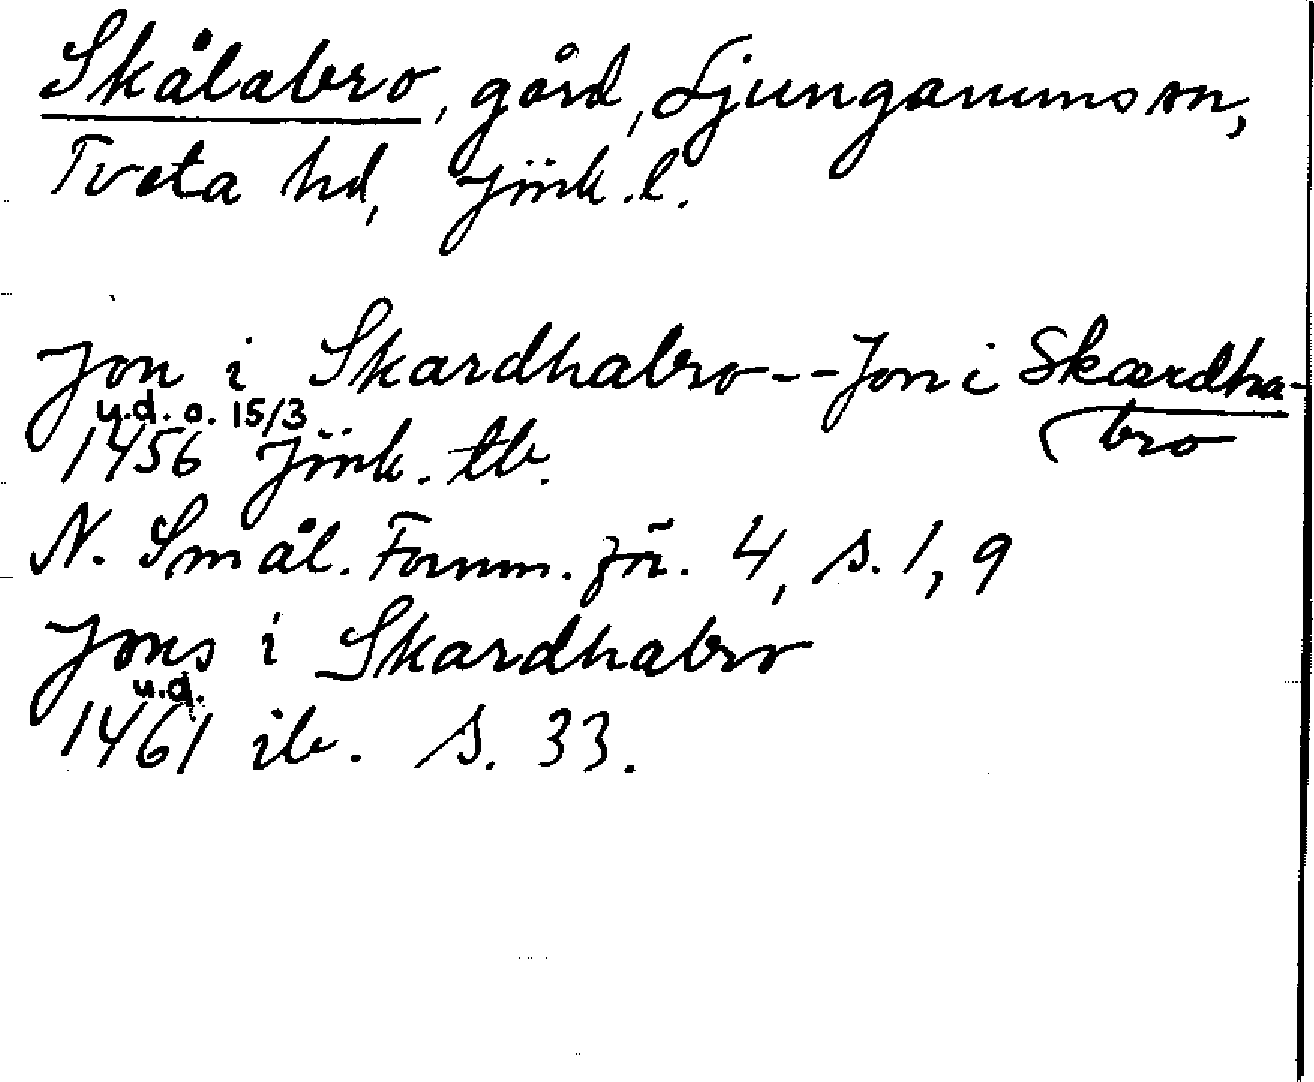 Skålabro, gård, Ljungarums sn,
Tveta hd, Jönk. l.
Jon i Skardhabro -- Jon i Skærdha-
bro
u.d. o. 15/3
1456 Jönk. tb.
N. Smål. Fornm. för. 4, s. 1, 9
Jons i Skardhabro
u.d.
1461 ib. s. 33.